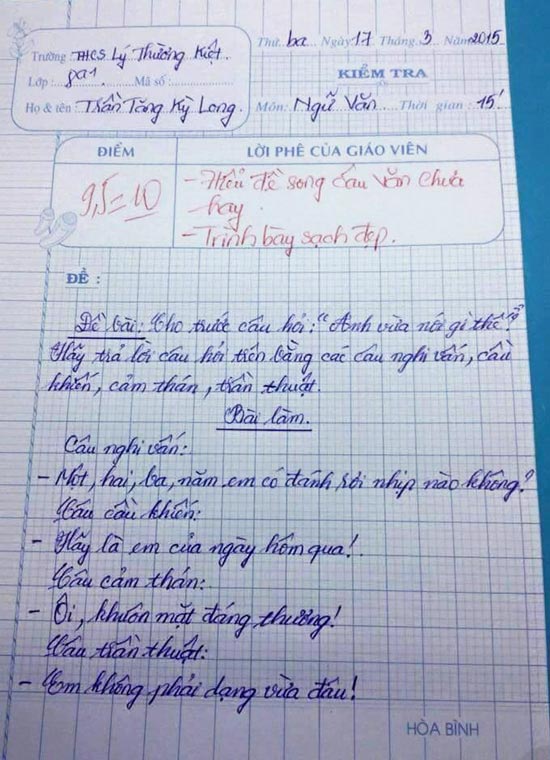 Trường THCS Lý Thường Kiệt.
Thứ ba Ngày 17 Tháng 3 Năm 2015
Lớp : 8a1 Mã số :
KIỂM TRA
Họ & tên : Trần Tăng Kỳ Long.
Môn: Ngữ Văn Thời gian : 15'
ĐIỂM
LỜI PHÊ CỦA GIÁO VIÊN
9,5 = 10
- Hiểu đề song câu văn chưa
hay.
- Trình bày sạch đẹp.
ĐỀ :
Đề bài: Cho trước câu hỏi: "Anh vừa nói gì thế?"
Hãy trả lời câu hỏi trên bằng các câu nghi vấn, cầu
khiến, cảm thán, trần thuật.
Bài làm.
Câu nghi vấn:
- Một, hai, ba, năm em có đánh rơi nhịp nào không?
Câu cầu khiến:
- Hãy là em của ngày hôm qua!
Câu cảm thán:
- Ôi, khuôn mặt đáng thương!
Câu trần thuật:
- Em không phải dạng vừa đâu!
HÒA BÌNH